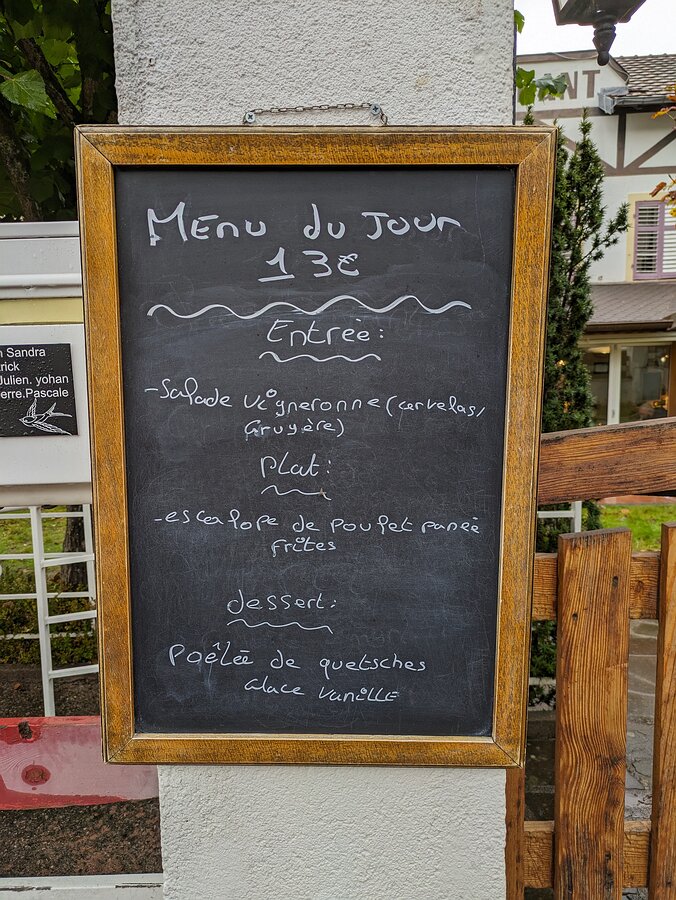 ANT
Menu du Jour
13€
Entrée:
-Salade vigneronne (cervelas/
Gruyère)
Plat:
-escalope de poulet panée
frites
dessert:
Poêlée de quetsches
Glace vanille
Sandra
rick
Julien. yohan
ierre.Pascale